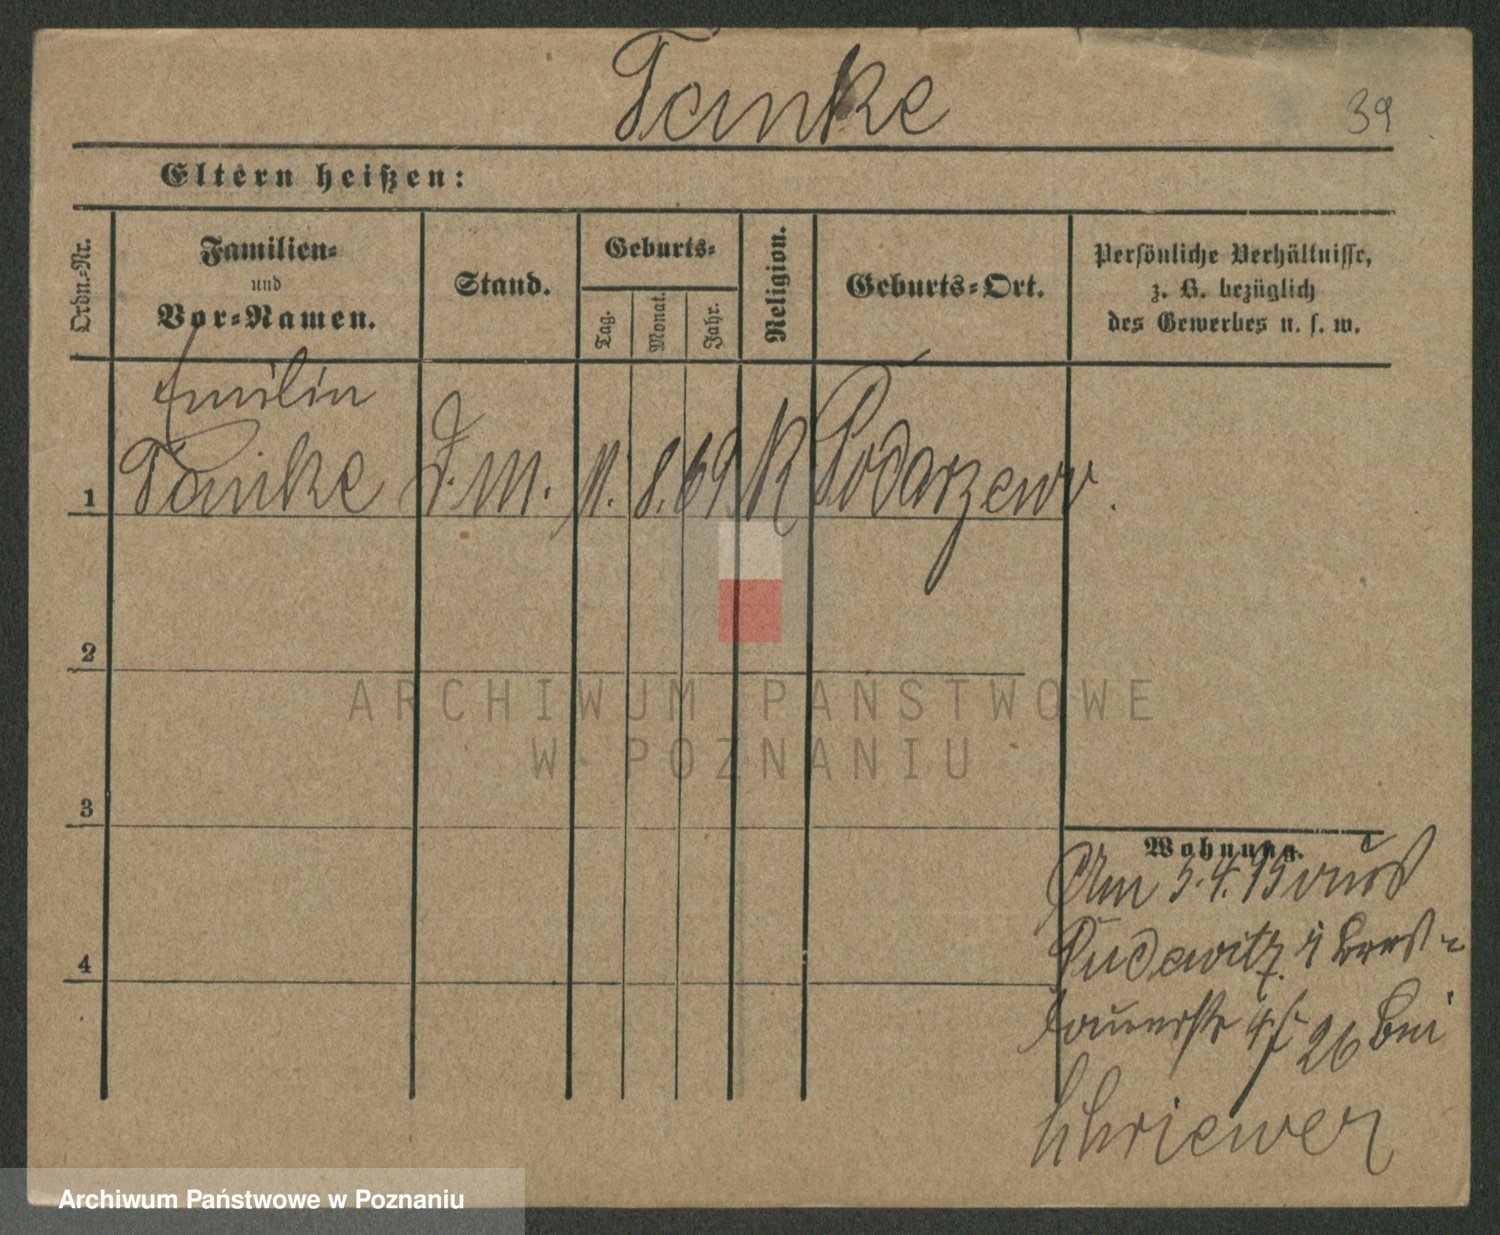 Tanke
39
Eltern heißen:
Ordn.-Nr.
Familien-
und
Vor-Namen.
Stand.
Geburts-
Tag.
Monat.
Jahr.
Religion.
Geburts-Ort.
Persönliche Verhältnisse,
z. B. bezüglich
des Gewerbes u. s. w.
Emilin
1 Tanke D. M. 11. 8. 69 K Podarzewo.
2
ARCHIWUM PAŃSTWOWE
W POZNANIU
3
Wohnung.
Am 3.4.95 aus
Pudewitz
4
26 bei
Schriewer
Archiwum Państwowe w Poznaniu